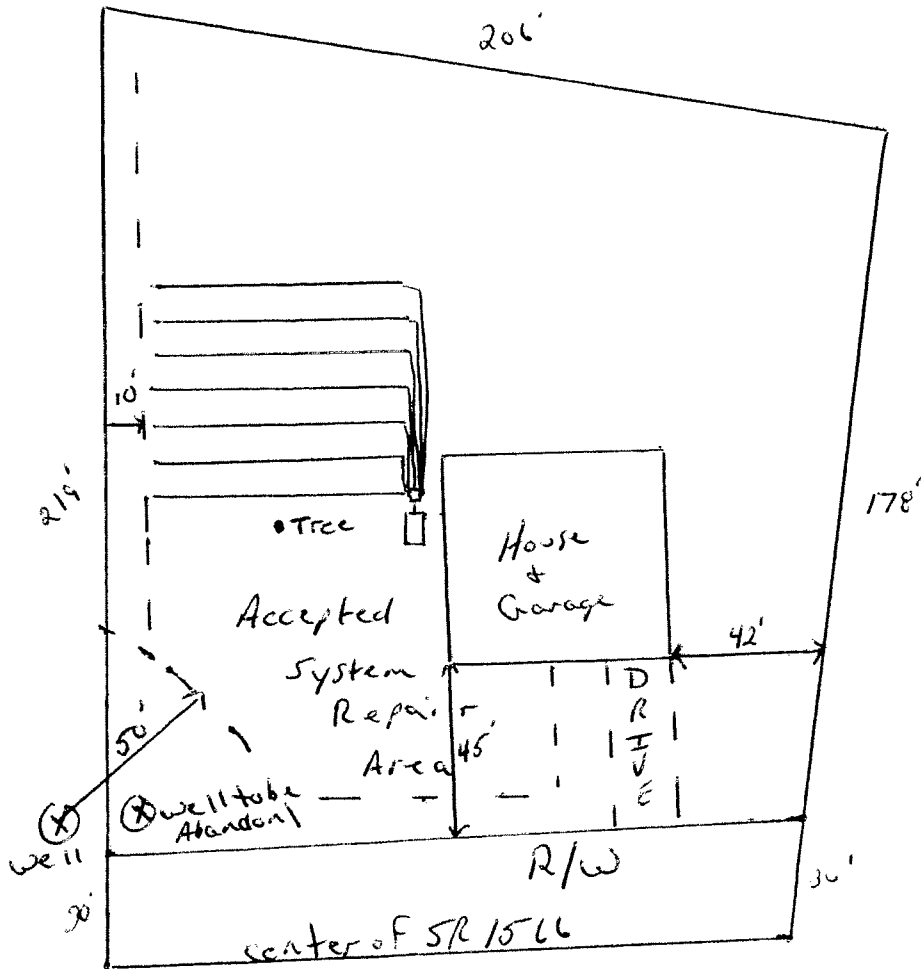 206'
10'
178'
• Tree
House
+
Garage
Accepted
System
Repair
Area
42'
45'
DRIVE
50'
well tobe
Abandon
well
R/W
30'
center of SR 1566